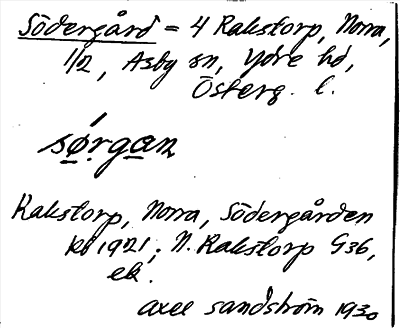 Södergård = 4 Rakstorp, Norra,
1/2, Asby sn, Ydre hd,
Österg. l.
sǿ̣rgạn
Rakstorp, Norra, Södergården
kb 1921; N. Rakstorp G36,
ek.
Axel Sandström 1930